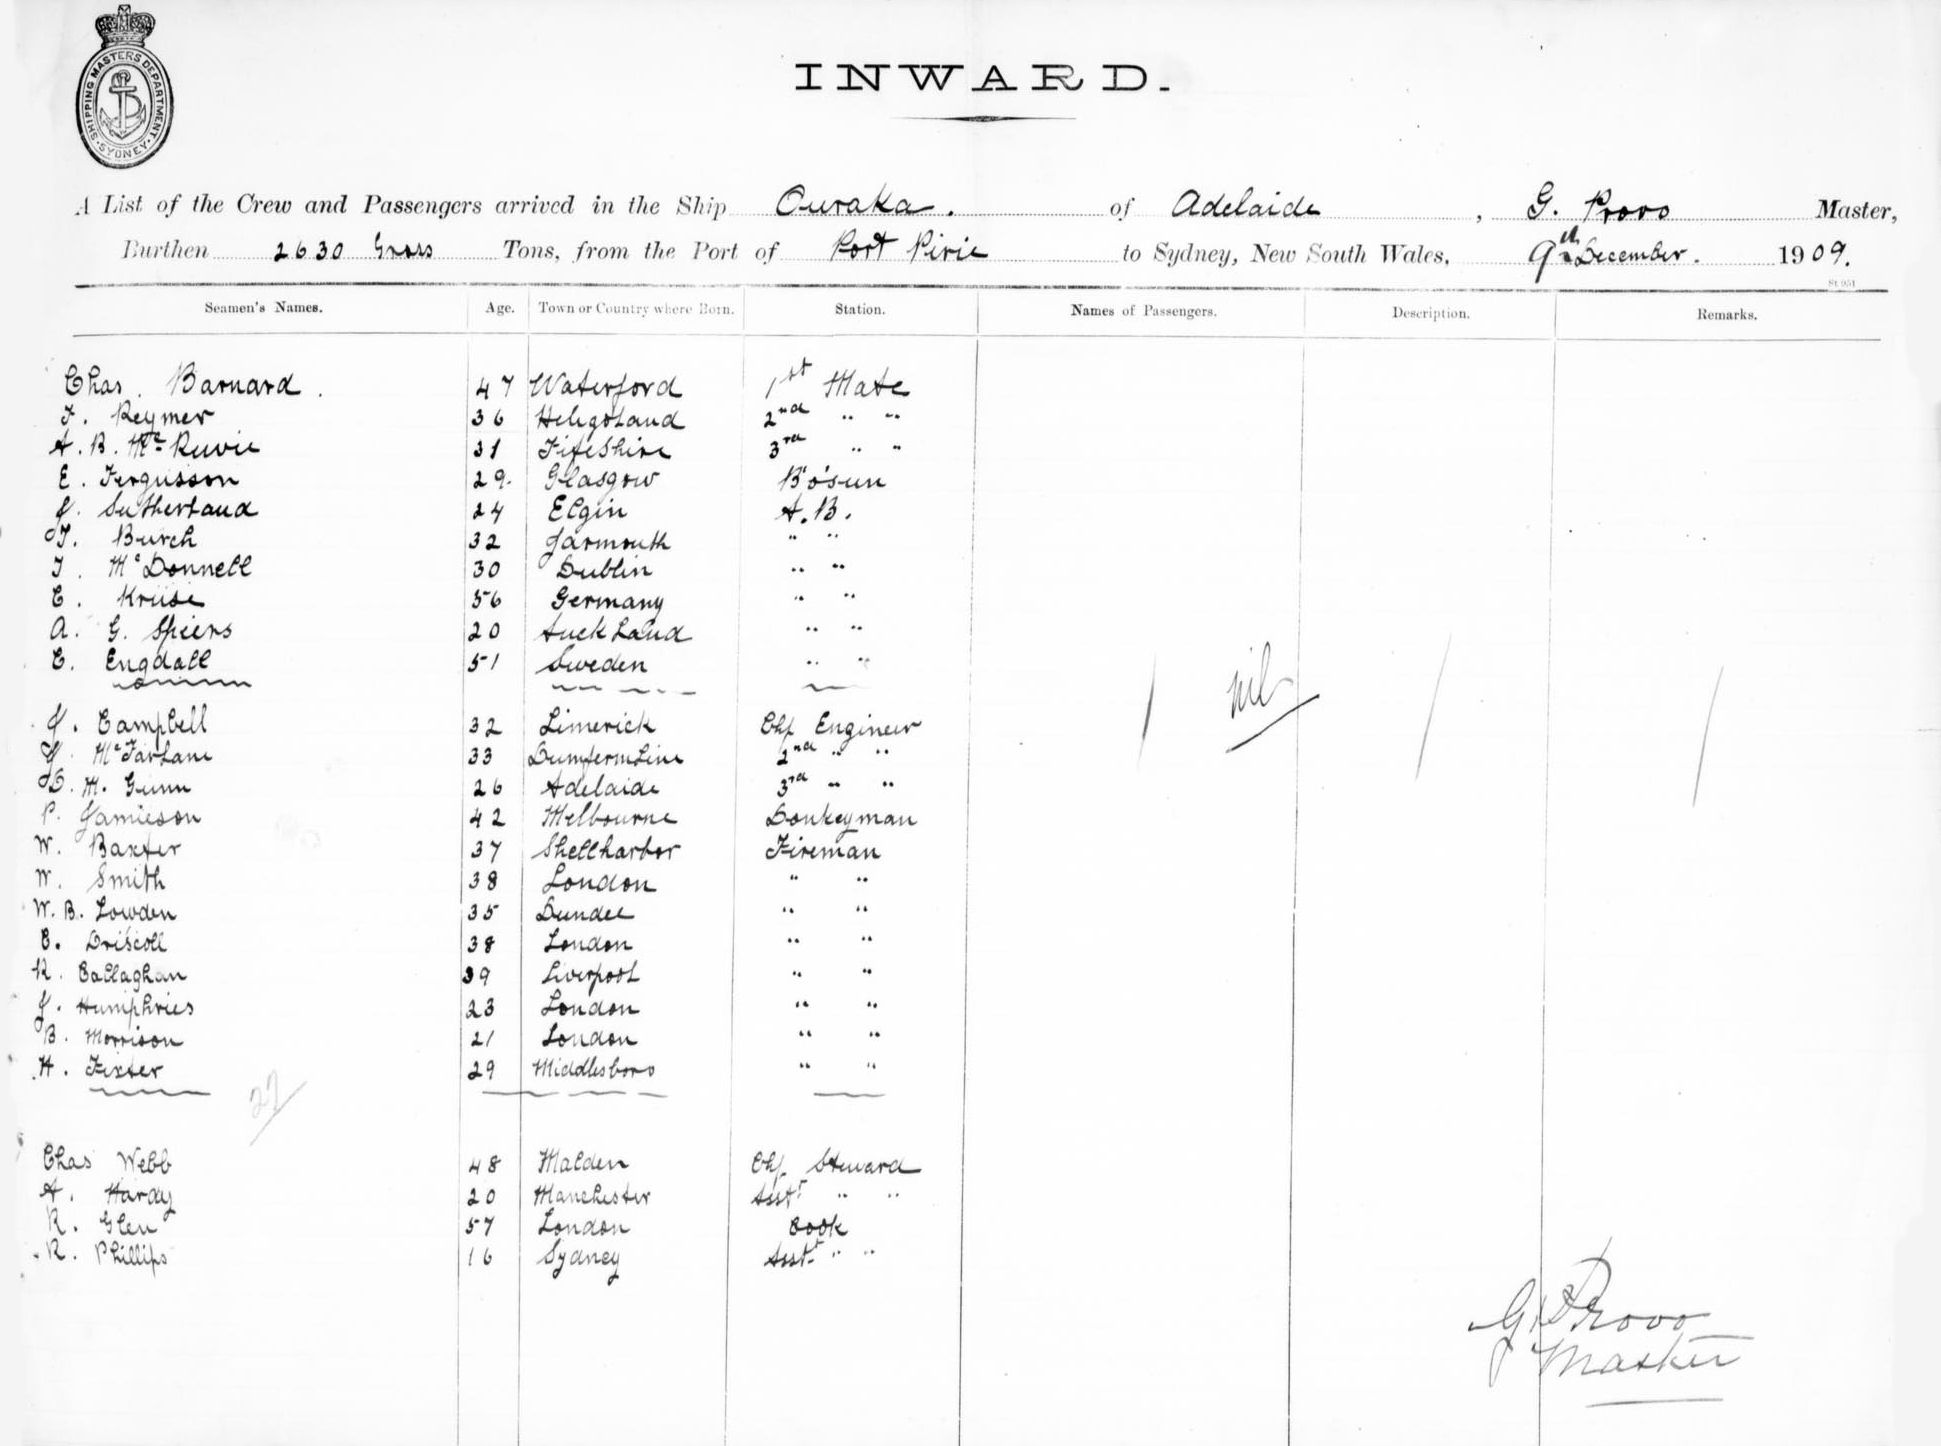 SHIPPING MASTERS DEPARTMENT
SYDNEY
INWARD.
A List of the Crew and Passengers arrived in the Ship Ouraka. of Adelaide, G. Provo Master,
Burthen 2630 Gross Tons, from the Port of Port Pirie to Sydney, New South Wales, 9th December. 1909.
St. 951
Seamen's Names. Age. Town or Country where Born. Station. Names of Passengers. Description. Remarks.
Chas. Barnard. 47 Waterford 1st Mate
F. Reymer 36 Heligoland 2nd " "
A. B. McRuvie 31 Fifeshire 3rd " "
E. Fergusson 29. Glasgow Bo'sun
J. Sutherland 24 Elgin A.B.
T. Burch 32 Yarmouth " "
J. McDonnell 30 Dublin " "
C. Krüse 56 Germany " "
A. G. Spiers 20 Auckland " "
C. Engdall 51 Sweden " "
nil
J. Campbell 32 Limerick Chf Engineer
J. McFarlane 33 Dumfermline 2nd " "
D. M. Gunn 26 Adelaide 3rd " "
P. Jamieson 42 Melbourne Donkeyman
W. Baxter 37 Shellharbor Fireman
W. Smith 38 London " "
W. B. Lowden 35 Dundee " "
C. Driscoll 38 London " "
R. Callaghan 39 Liverpool " "
J. Humphries 23 London " "
B. Morrison 21 London " "
H. Fixter 29 Middlesboro " "
27
Chas Webb 48 Malden Chf. Steward
A. Hardy 20 Manchester Asst " "
R. Glen 57 London Cook
R. Phillips 16 Sydney Asst " "
G Provo
Master